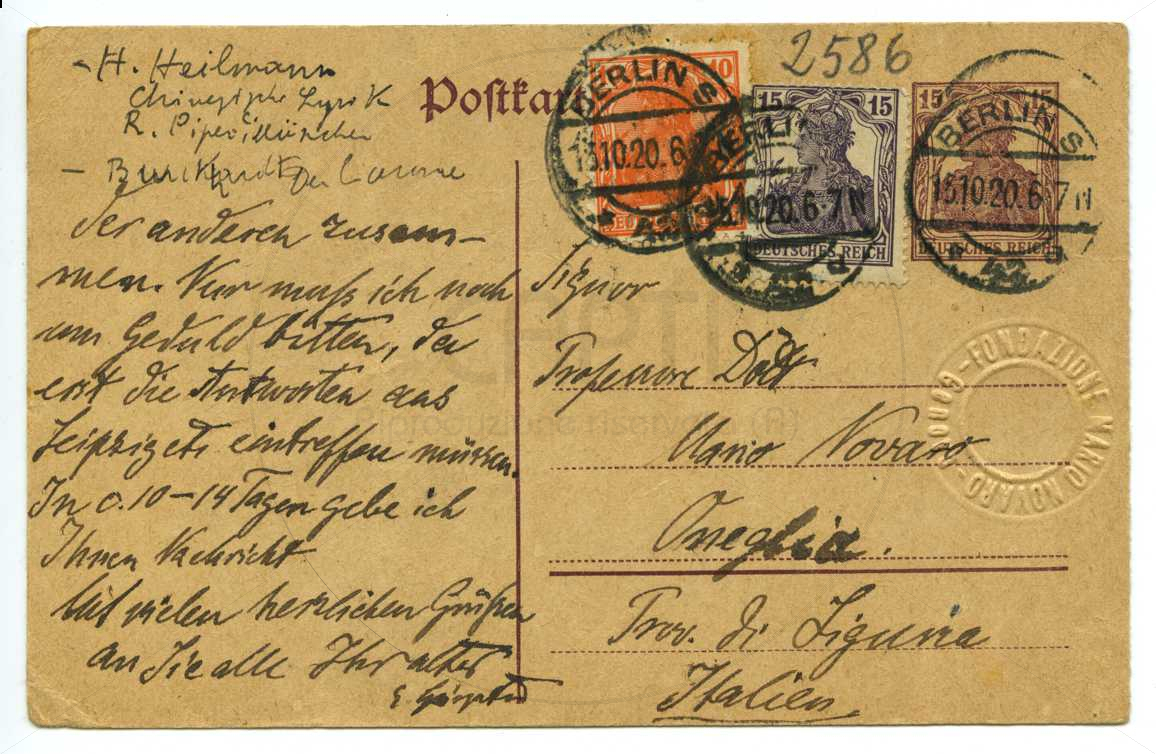 2586
- H. Heilmann
Chinesische Lyrik
R. Piper München
- Burckardt Der Cicerone
Postkar
40
15 15
15 15
BERLIN S
13.10.20.6
BERLI
13.10.20.6-7N
BERLIN S
13.10.20.6-7N
DEUTSCHES REICH
DEUTSCHES REICH
der anderen zusam-
men. Nur muß ich noch
um Geduld bitten, da
erst die Antworten aus
Leipzig etc eintreffen müssen.
In c. 10-14 Tagen gebe ich
Ihnen Nachricht
Mit vielen herzlichen Grüßen
an Sie alle Ihr alter
E.
Signor
Professore Dott
Mario Novaro
Oneglia.
Prov. di Liguria
Italien
FONDAZIONE MARIO NOVARO
Riproduzione riservata (R)